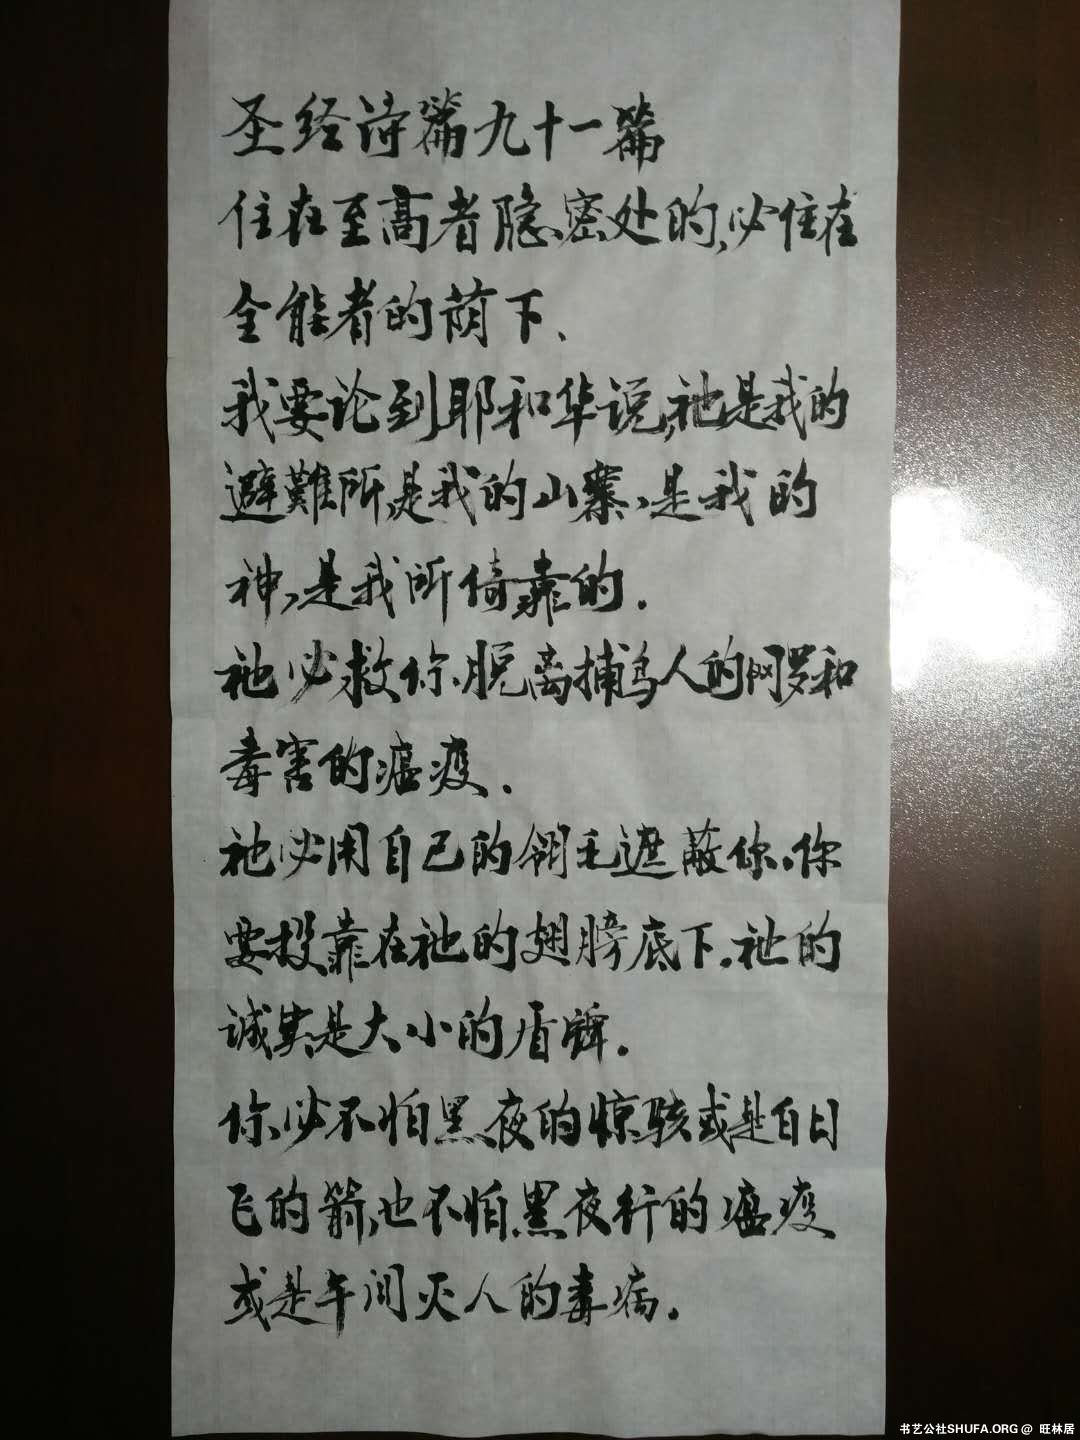 圣经诗篇九十一篇
住在至高者隐密处的,必住在
全能者的荫下、
我要论到耶和华说,祂是我的
避難所,是我的山寨、是我的
神,是我所倚靠的.
祂必救你、脱离捕鸟人的网罗和
毒害的瘟疫.
祂必用自己的翎毛遮蔽你、你
要投靠在祂的翅膀底下.祂的
诚实是大小的盾牌.
你必不怕黑夜的惊骇或是白日
飞的箭,也不怕黑夜行的瘟疫
或是午间灭人的毒病.
书艺公社SHUFA.ORG @ 旺林居